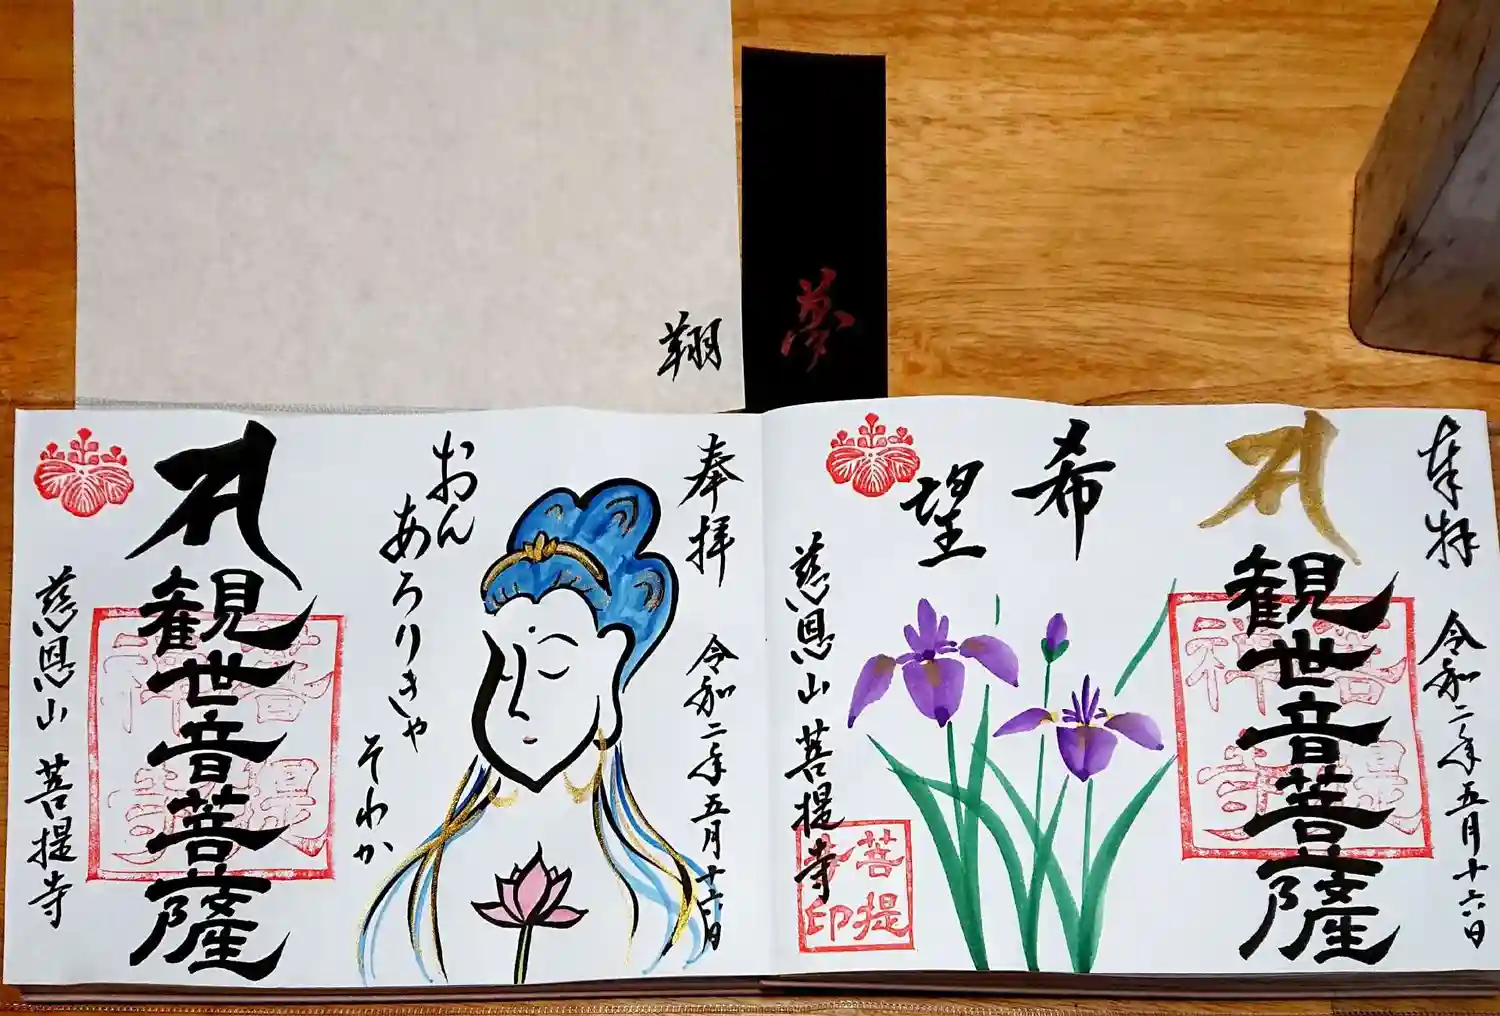 翔
夢
奉拝
令和二年五月十六日
希望
観世音菩薩
慈恩山 菩提寺
菩提
寺印
奉拝
令和二年五月十六日
おん
あろりきゃ
そわか
観世音菩薩
慈恩山 菩提寺